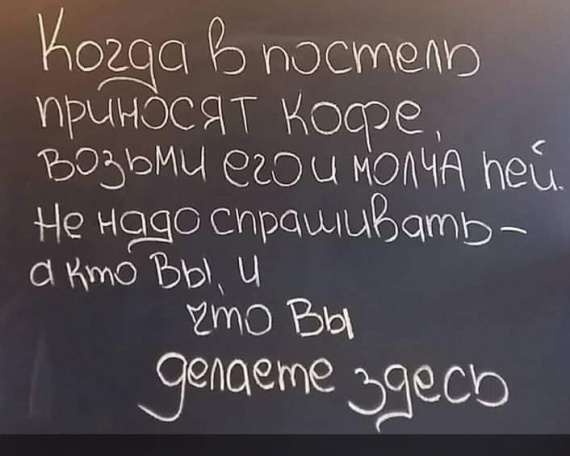 Когда в постель
приносят кофе,
возьми его и молча пей.
Не надо спрашивать –
а кто Вы, и
что Вы
делаете здесь